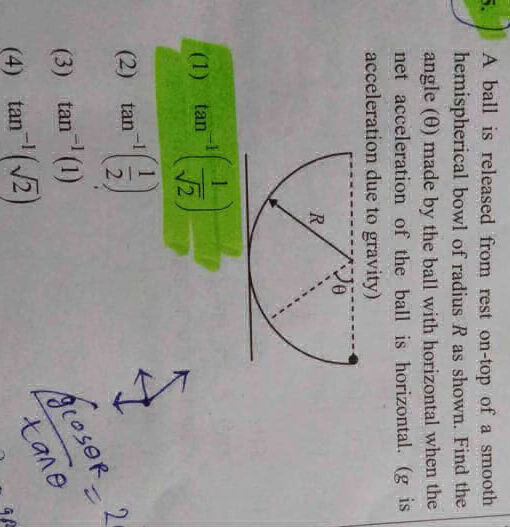 5. A ball is released from rest on-top of a smooth
hemispherical bowl of radius R as shown. Find the
angle (θ) made by the ball with horizontal when the
net acceleration of the ball is horizontal. (g is
acceleration due to gravity)
θ
R
(1) tan⁻¹(1/√2)
(2) tan⁻¹(1/2)
(3) tan⁻¹(1)
(4) tan⁻¹(√2)
gcosθR = 2
tanθ